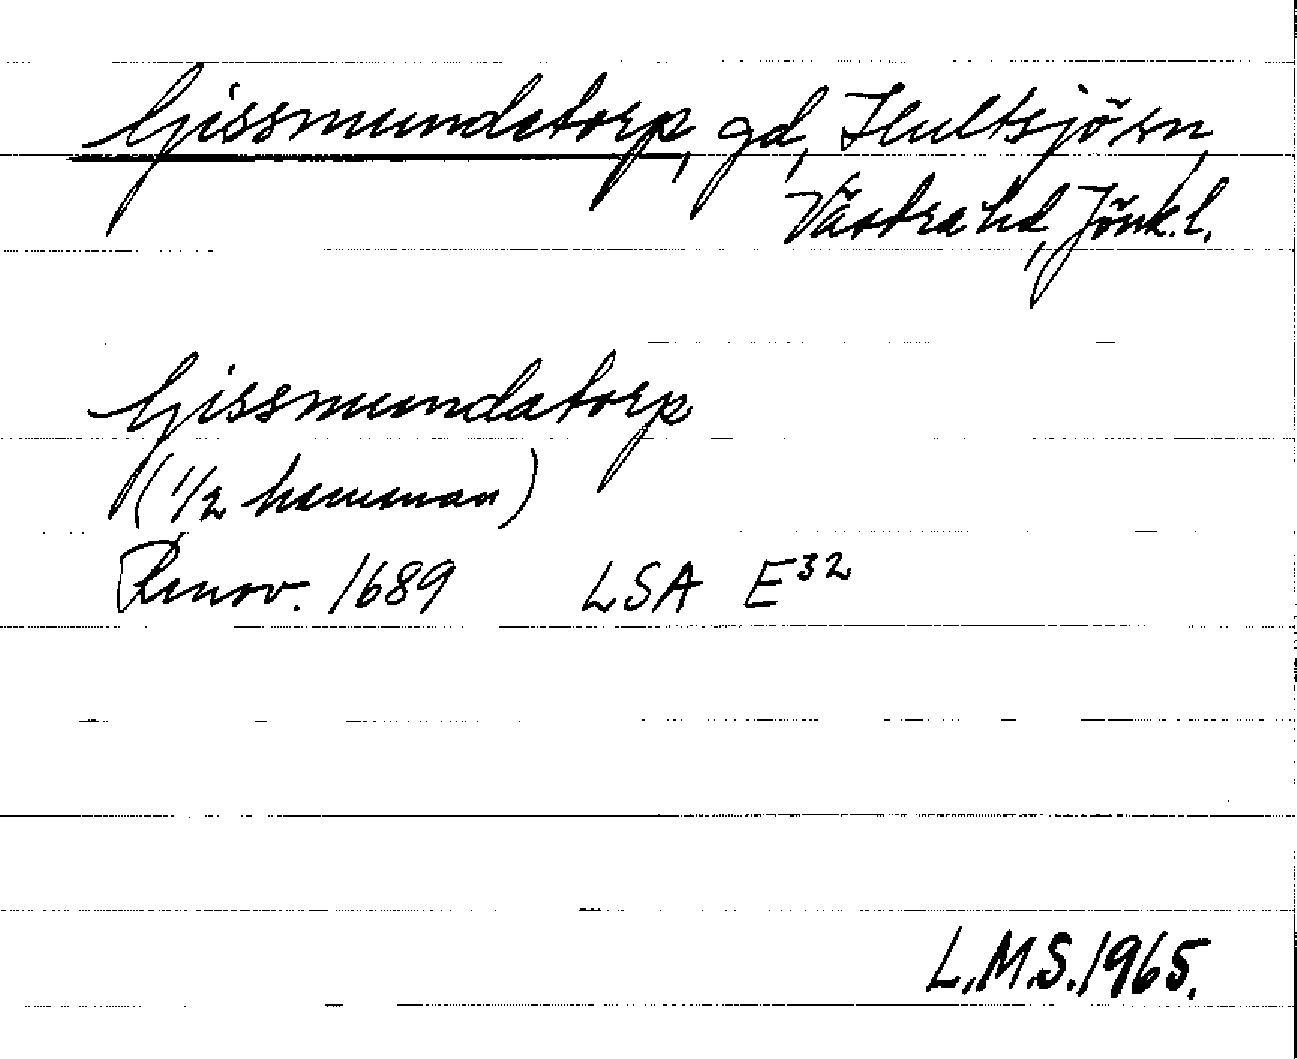 Gissmundetorp, gd, Hultsjö sn,
Västra hd, Jönk.l.
Gissmundatorp
(1/2 hemman)
Renov. 1689 LSA E³²
L.M.S. 1965.